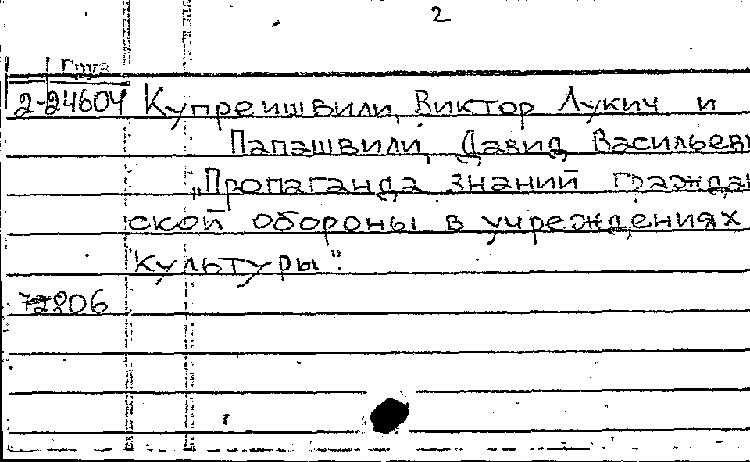 2
Груз
2-24604 Купреишвили, Виктор Лукич и
Папашвили, Давид Васильеви
„Пропаганда знаний граждан
ской обороны в учреждениях
культуры".
72806